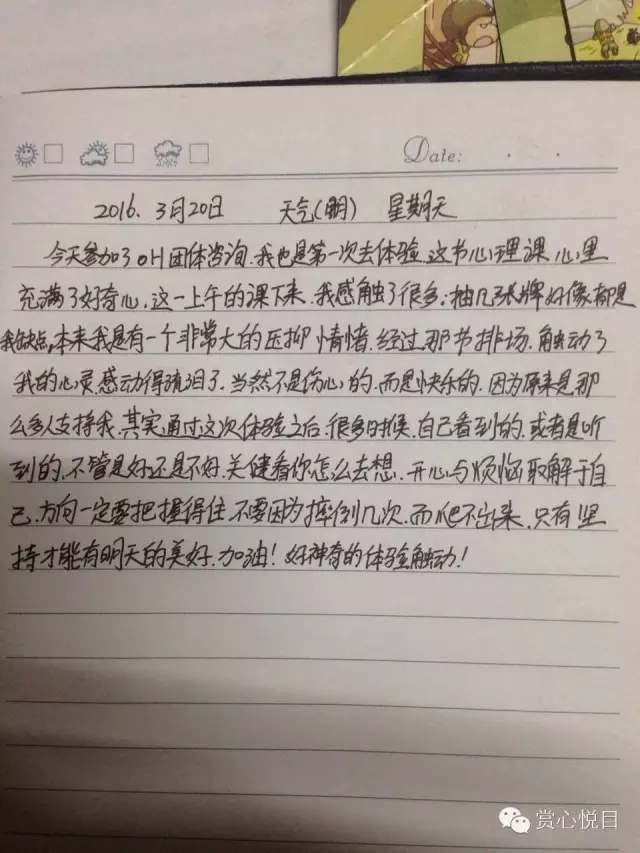 Date:
2016. 3月20日 天气(晴) 星期天
今天参加了OH团体咨询.我也是第一次去体验.这节心理课.心里
充满了好奇心.这一上午的课下来.我感触了很多:抽几张牌好像都是
我缺点.本来我是有一个非常大的压抑情绪.经过那节排场.触动了
我的心灵.感动得流泪了.当然不是伤心的.而是快乐的.因为原来是那
么多人支持我.其实通过这次体验之后.很多时候.自己看到的.或者是听
到的.不管是好还是不好.关健看你怎么去想.开心与烦恼取解于自
己.方向一定要把握得住.不要因为摔倒几次.而爬不出来.只有坚
持才能有明天的美好.加油!好神奇的体验触动!
赏心悦目